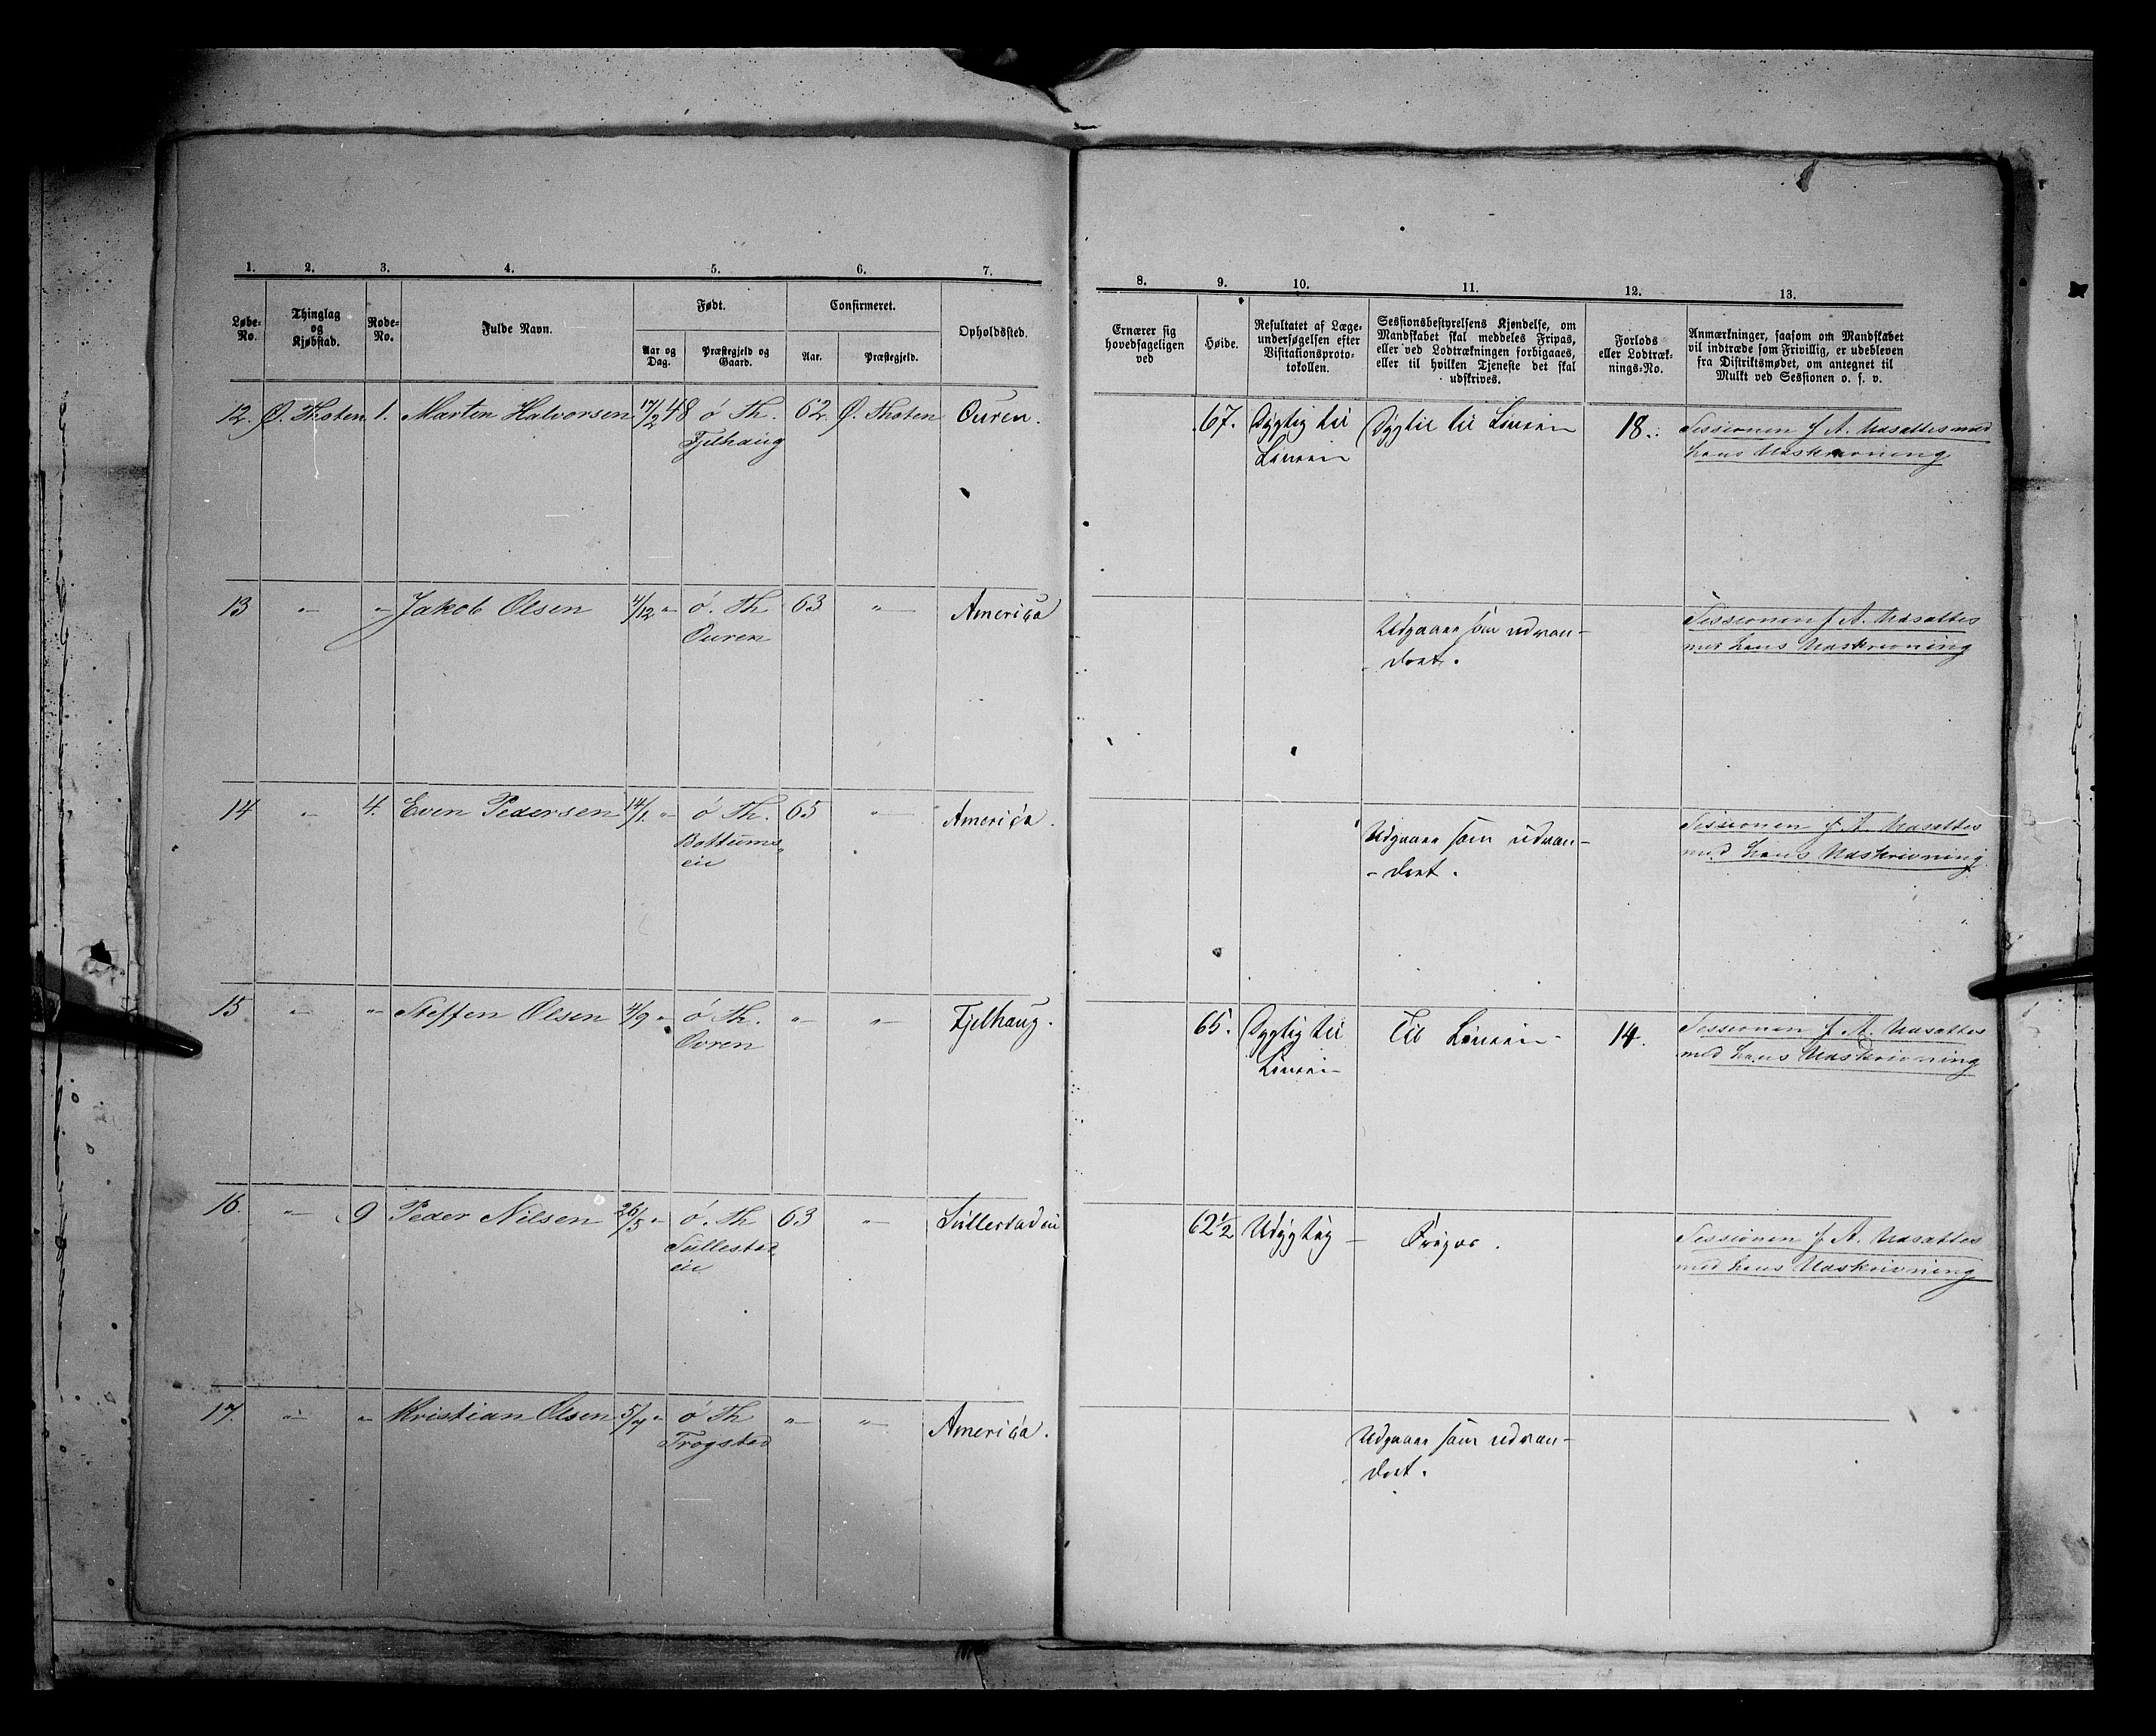 1. 2. 3. 4. 5. 6. 7.
Løbe-No. Thinglag og Kjøbstad. Rode-No. Fulde Navn. Født. Confirmeret. Opholdssted.
Aar og Dag. Præstegjeld og Gaard. Aar. Præstegjeld.
12. Ø. Thoten 1. Marten Halvorsen 17/2 48 ø Th. 62 Ø. Thoten Ouren.
Fjelhaug
13 " " Jakob Olsen 4/12 " ø. Th 63 " America
Ouren
14 " 4. Even Pedersen 14/1. " ø Th. 65 " America.
Bottums
eie
15 " " Steffen Olsen 4/9 " ø Th. " " Fjelhaug.
Ovren
16. " 9 Peder Nilsen 26/5 " ø. Th 63 " Sullestadeie
Sullestad
eie
17. " " Kristian Olsen 5/7 " ø Th " " America.
Trogstad
8. 9. 10. 11. 12. 13.
Ernærer sig
hovedsageligen
ved
Høide.
Resultatet af Læge-
undersøgelsen efter
Visitationsproto-
tokollen.
Sessionsbestyrelsens Kjendelse, om
Mandskabet skal meddeles Fripas,
eller ved Lodtrækningen forbigaaes,
eller til hvilken Tjeneste det skal
udskrives.
Forlods
eller Lodtræk-
nings-No.
Anmærkninger, saasom om Mandskabet
vil indtræde som Frivillig, er udebleven
fra Distriktsmødet, om antegnet til
Mulkt ved Sessionen o. s. v.
67. Dygtig til Dygtig til Linien 18. Sessionen f A. Udsattes med
Linien hans Udskrivning
Udgaaer som udvan- Sessionen f A. Udsattes
dret. med hans Udskrivning
Udgaaer som udvan- Sessionen f A. Udsattes
-dret. med hans Udskrivning
65. Dygtig til Til Linien 14. Sessionen f A. Udsattes
Linien med hans Udskrivning
62 1/2 Udygtig - Fripas. Sessionen f A. Udsattes
med hans Udskrivning
Udgaaer som udvan-
dret.